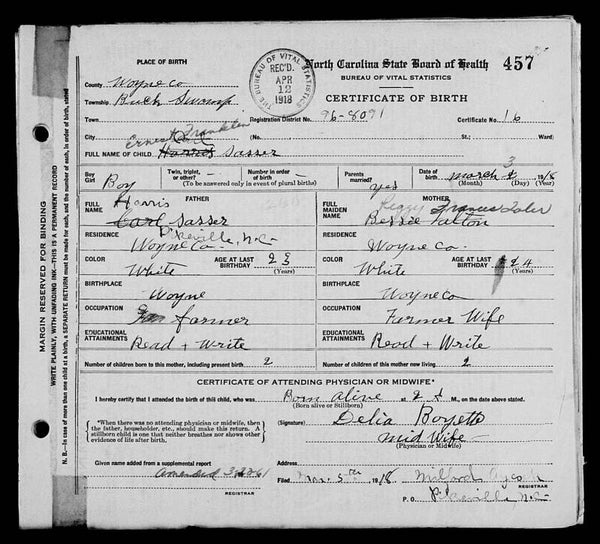 PLACE OF BIRTH
County Wayne Co
Township Buck Swamp
Town
City
THE BUREAU OF VITAL STATISTICS
REC'D.
APR
12
1918
North Carolina State Board of Health 457
BUREAU OF VITAL STATISTICS
CERTIFICATE OF BIRTH
Registration District No. 96-8091 Certificate No. 16
(No. St.; Ward)
Ernest Franklin
FULL NAME OF CHILD Harris Sasser
Boy Girl Boy
Twin, triplet, or other? - Number in order -
(To be answered only in event of plural births)
Parents married? yes
Date of birth March 3 1918
(Month) (Day) (Year)
FATHER
FULL NAME Harris
Carl Sasser
RESIDENCE Pikeville, N.C.
Wayne Co.
COLOR White AGE AT LAST BIRTHDAY 23 (Years)
BIRTHPLACE Wayne
OCCUPATION farmer
EDUCATIONAL ATTAINMENTS Read + Write
Number of children born to this mother, including present birth 2
MOTHER
FULL MAIDEN NAME Frances
Bessie
RESIDENCE Wayne Co.
COLOR White AGE AT LAST BIRTHDAY 24 (Years)
BIRTHPLACE Wayne Co
OCCUPATION Farmer Wife
EDUCATIONAL ATTAINMENTS Read + Write
Number of children of this mother now living 2
CERTIFICATE OF ATTENDING PHYSICIAN OR MIDWIFE*
I hereby certify that I attended the birth of this child, who was Born alive at 2 M., on the date above stated.
(Born alive or Stillborn)
*When there was no attending physician or midwife, then the father, householder, etc., should make this return. A stillborn child is one that neither breathes nor shows other evidence of life after birth.
(Signature) Delia Boyett
Mid Wife
(Physician or Midwife)
Given name added from a supplemental report
Amended
REGISTRAR
Address
Filed Mar. 5th 1918 Milford
REGISTRAR
P. O. Pikeville N.C.
MARGIN RESERVED FOR BINDING
WRITE PLAINLY, WITH UNFADING INK—THIS IS A PERMANENT RECORD
N. B.—In case of more than one child at a birth, a SEPARATE RETURN must be made for each, and the number of each, in order of birth, stated